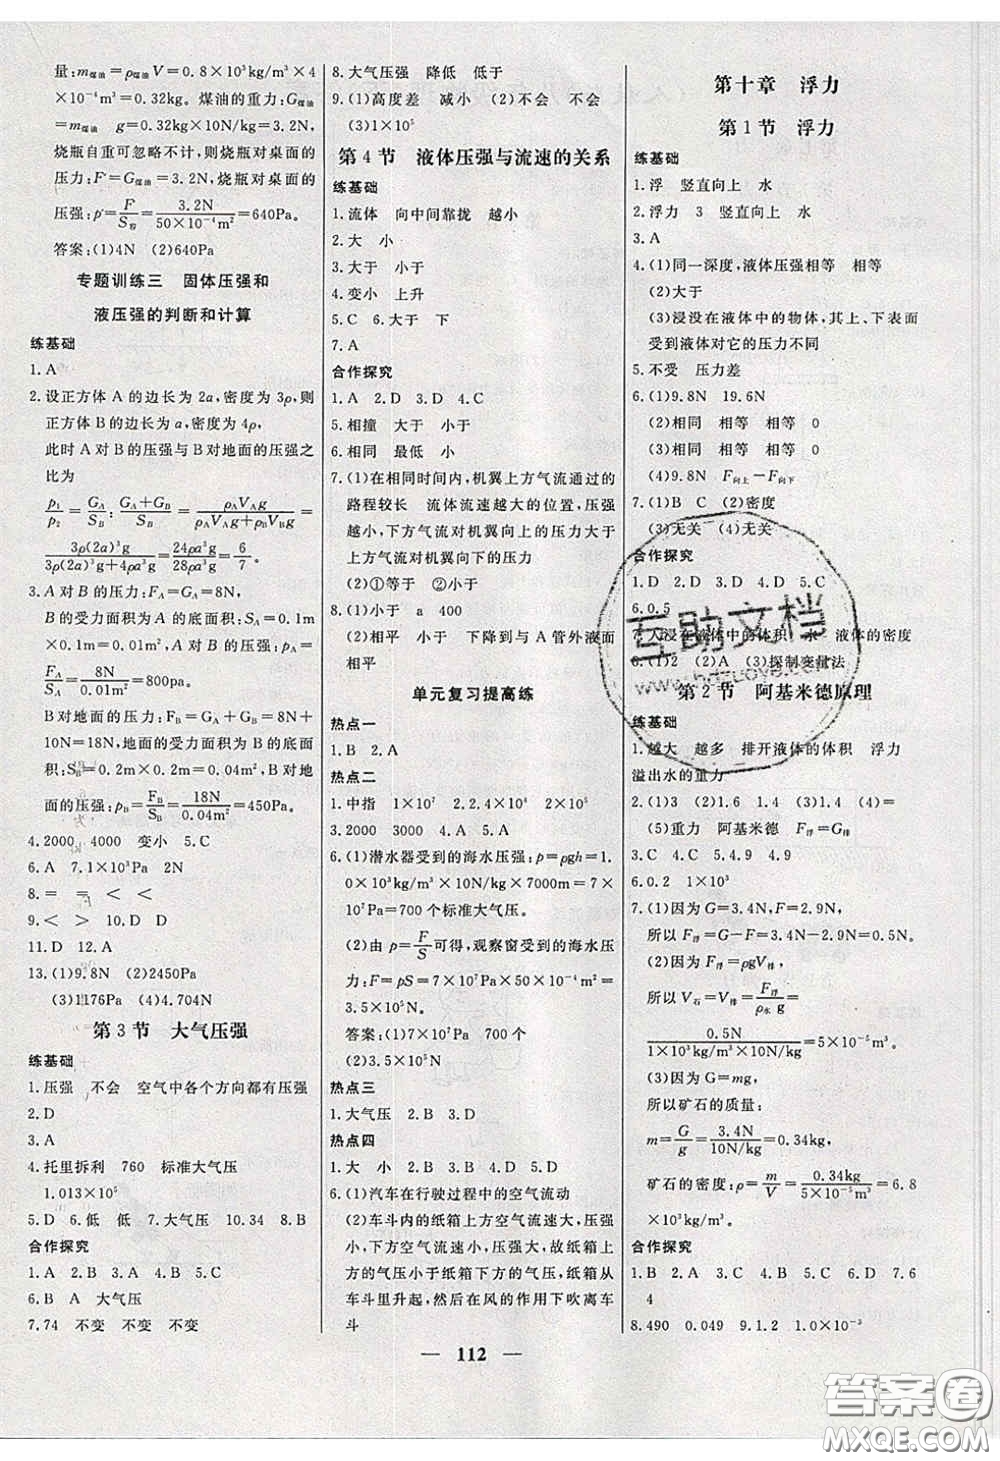 量:m煤油=ρ煤油V=0.8×10³kg/m³×4
×10⁻⁴m³=0.32kg。煤油的重力:G煤油
=m煤油 g=0.32kg×10N/kg=3.2N,
烧瓶自重可忽略不计,则烧瓶对桌面的
压力:F=G煤油=3.2N,烧瓶对桌面的
压强:p=F/S容=3.2N/50×10⁻⁴m²=640Pa。
答案:(1)4N (2)640Pa
专题训练三 固体压强和
液压强的判断和计算
练基础
1.A
2.设正方体A的边长为2a,密度为3ρ,则
正方体B的边长为a,密度为4ρ,
此时A对B的压强与B对地面的压强之
比为
p₁/p₂=G_A/S_B:G_A+G_B/S_B=ρ_AV_Ag/ρ_AV_Ag+ρ_BV_Bg=
3ρ(2a)³g/3ρ(2a)³g+4ρa³g=24ρa³g/28ρa³g=6/7。
3.A对B的压力:F_A=G_A=8N,
B的受力面积为A的底面积:S_A=0.1m
×0.1m=0.01m²,A对B的压强:p_A=
F_A/S_A=8N/0.01m²=800Pa。
B对地面的压力:F_B=G_A+G_B=8N+
10N=18N,地面的受力面积为B的底面
积:S_B=0.2m×0.2m=0.04m²,B对地
面的压强:p_B=F_B/S_B=18N/0.04m²=450Pa。
4.2000 4000 变小 5.C
6.A 7.1×10³Pa 2N
8.= = < <
9.< > 10.D D
11.D 12.A
13.(1)9.8N (2)2450Pa
(3)1176Pa (4)4.704N
第3节 大气压强
练基础
1.压强 不会 空气中各个方向都有压强
2.D
3.A
4.托里拆利 760 标准大气压
1.013×10⁵
5.D 6.低 低 7.大气压 10.34 8.B
合作探究
1.A 2.D 3.B 4.A 5.C
6.B A 大气压
7.74 不变 不变 不变
8.大气压强 降低 低于
9.(1)高度差 减小 (2)不会 不会
(3)1×10⁵
第4节 液体压强与流速的关系
练基础
1.流体 向中间靠拢 越小
2.大 小
3.大于 小于
4.变小 上升
5.C 6.大于 下
7.A
合作探究
1.A 2.D 3.D 4.C
5.相撞 大于 小于
6.相同 最低 小
7.(1)在相同时间内,机翼上方气流通过的
路程较长 流体流速越大的位置,压强
越小,下方气流对机翼向上的压力大于
上方气流对机翼向下的压力
(2)①等于 ②小于
8.(1)小于 a 400
(2)相平 小于 下降到与A管外液面
相平
单元复习提高练
热点一
1.B 2.A
热点二
1.中指 1×10⁷ 2.2.4×10⁶ 2×10⁵
3.2000 3000 4.A 5.A
6.(1)潜水器受到的海水压强:p=ρgh=1.
0×10³kg/m³×10N/kg×7000m=7×
10⁷Pa=700个标准大气压。
(2)由p=F/S可得,观察窗受到的海水压
力:F=pS=7×10⁷Pa×50×10⁻⁴m²=
3.5×10⁵N。
答案:(1)7×10⁷Pa 700个
(2)3.5×10⁵N
热点三
1.大气压 2.B 3.D
热点四
1.大 小 2.B 3.D 4.B 5.A
6.(1)汽车在行驶过程中的空气流动
(2)车斗内的纸箱上方空气流速大,压强
小,下方空气流速小,压强大,故纸箱上方
的气压小于纸箱下方的气压,纸箱从
车斗里升起,然后在风的作用下吹离车
斗
第十章 浮力
第1节 浮力
练基础
1.浮 竖直向上 水
2.浮力 3 竖直向上 水
3.A
4.(1)同一深度,液体压强相等 相等
(2)大于
(3)浸没在液体中的物体,其上、下表面
受到液体对它的压力不同
5.不受 压力差
6.(1)9.8N 19.6N
(2)相同 相等 相等 0
(3)相同 相等 相等 0
(4)9.8N F向上-F向下
7.(1)B C (2)密度
(3)无关 (4)无关
合作探究
1.D 2.D 3.D 4.D 5.C
6.0.5
7.人浸在液体中的体积 水 液体的密度
6.(1)2 (2)A (3)探制变量法
第2节 阿基米德原理
练基础
1.越大 越多 排开液体的体积 浮力
溢出水的重力
2.(1)3.8 (2)1.4 (3)1.4 (4)=
(5)重力 阿基米德 F浮=G排
3.C 4.C 5.4.9 4.9
6.0.2 1×10³
7.(1)因为G=3.4N,F=2.9N,
所以F浮=G-F=3.4N-2.9N=0.5N。
(2)因为F浮=ρgV排,
所以V石=V排=F浮/ρ水 g=
0.5N/1×10³kg/m³×10N/kg=5×10⁻⁵m³。
(3)因为G=mg,
所以矿石的质量:
m=G/g=3.4N/10N/kg=0.34kg,
矿石的密度:ρ=m/V=0.34kg/5×10⁻⁵m³=6.8
×10³kg/m³。
合作探究
1.B 2.D 3.D 4.C 5.C 6.D 7.6
4
8.490 0.049 9.1.2 1.0×10⁻³
— 112 —
互助文档
www.hdzuoye.com
答案圈
MXQE.COM